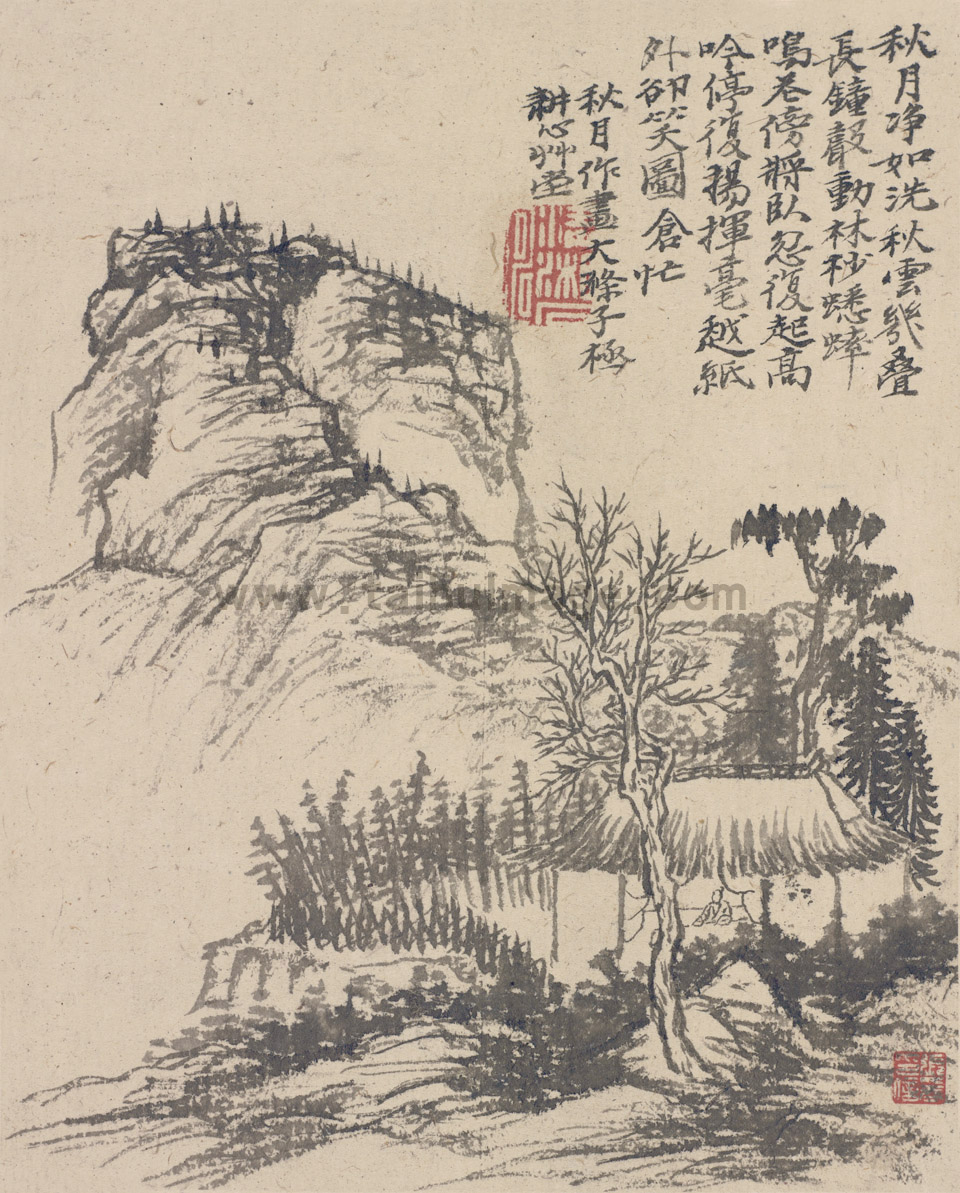 秋月净如洗秋雲幾叠
長鐘聲動林秒蟋蟀
鳴巷傍將臥忽復起高
吟停復揚揮毫越紙
外卻笑圖倉忙
秋月作畫大滌子極
耕心艸堂